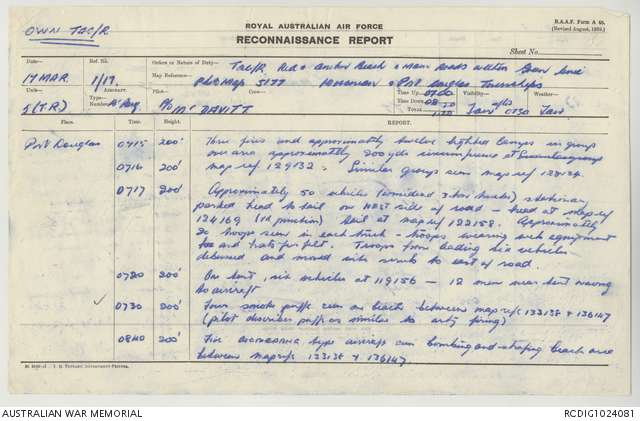 OWN TAC/R
ROYAL AUSTRALIAN AIR FORCE
RECONNAISSANCE REPORT
R.A.A.F. Form A 46.
(Revised August, 1939.)
Sheet No.
Date— Ref. No. Orders or Nature of Duty— Tac/R Rd + Beach + Main Roads within Given Area
17 MAR 1/17 Map Reference: Port Douglas Townships
Type— Aircraft. Pilot— Crew: Time Up 0700 Visibility— Weather—
5 (T.R) Number— P/O McDAVITT Time Down Fair 0730 Fair
PLACE. Time. Height. REPORT.
Port Douglas 0715 200' Three fires and approximately twelve lighted lamps in group
over area approximately 200 yds circumference at
0716 200' map ref 129132. Similar group seen map ref 128124.
0717 200' Approximately 50 vehicles (considered 3 ton trucks) stationary
parked head to tail on West side of road - head at map ref
124169 (rd junction) tail at map ref 122158. Approximately
20 troops seen in each truck - troops wearing web equipment
and hats fur felt. Troops from leading six vehicles
debussed and moved into scrub to east of road.
0720 200' One tent, six vehicles at 119156 - 12 men near tent waving
to aircraft
0730 200' Four smoke puffs seen on beach between map refs 133138 + 136147
(pilot describes puffs as similar to arty firing)
0840 200' Five type aircraft seen bombing and strafing beach area
between map refs 133138 + 136147
AUSTRALIAN WAR MEMORIAL
RCDIG1024081